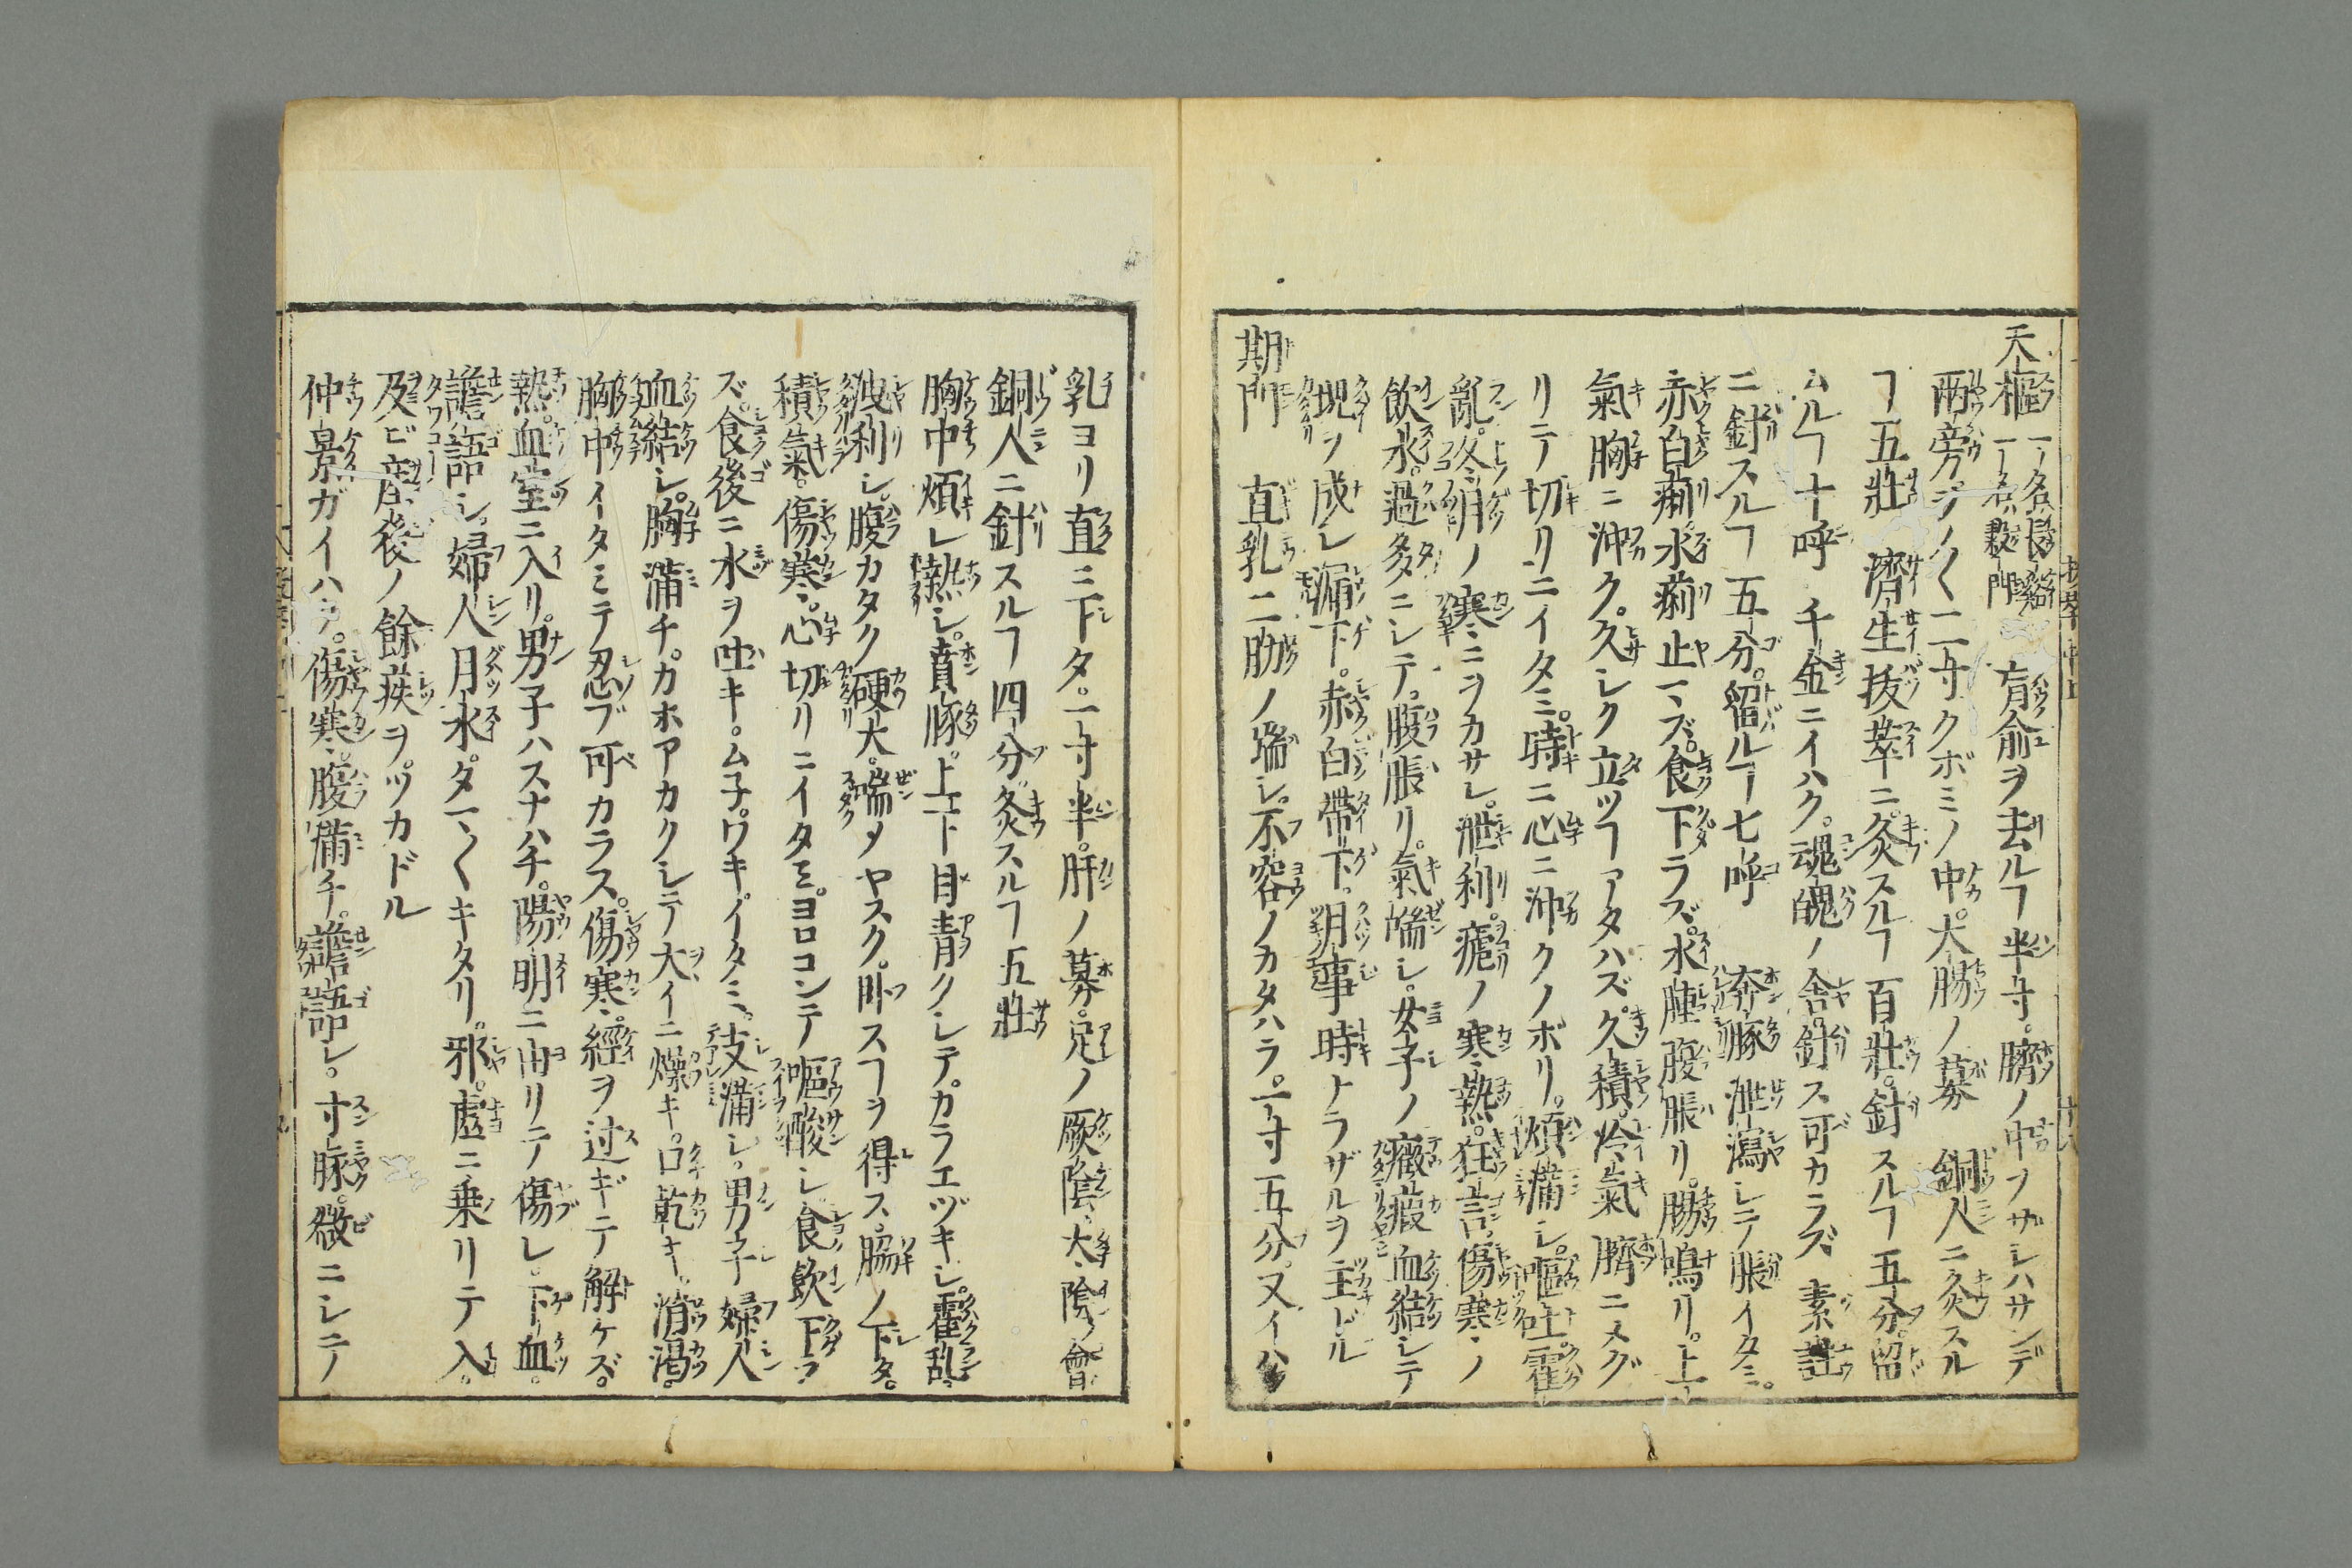 天樞 一名長谿 一名穀門 肓俞ヲ去ルヿ半寸。臍ノ中ヲサシハサンデ
兩旁ジノ〱二寸クボミノ中。大腸ノ募 銅人ニ灸スル
ヿ五壯 濟生抜萃ニ。灸スルヿ百壯。針スルヿ五分。留
ムルヿ十呼 千金ニイハク。魂魄ノ舍。針ス可カラズ 素註
ニ針スルヿ五分。留ルヿ七呼 奔豚泄瀉シテ脹イタミ。
赤白痢。水痢止マズ。食下ラズ。水腫腹脹リ。腸鳴リ。上
氣胸ニ沖ク。久シク立ツヿアタハズ。久積。冷氣臍ニメグ
リテ切リニイタミ。時ニ心ニ沖クノボリ。煩滿シ。嘔吐。霍
亂。冬月ノ寒ニヲカサレ。泄利。瘧ノ寒熱。狂言。傷寒ノ
飲水。過多ニシテ。腹脹リ。氣喘シ。女子ノ癥瘕血結シテ
塊ヲ成シ漏下。赤白帶下。月事時ナラザルヲ主ドル
期門 直乳二肋ノ端シ。不容ノカタハラ。一寸五分。又イハク
乳ヨリ直ニ下タ。一寸半。肝ノ募。足ノ厥陰大陰ノ會
銅人ニ針スルヿ四分灸スルヿ五壯
胸中煩レ熱シ。賁豚。上下目青クシテ。カラエヅキシ。霍乱。
洩利シ。腹カタク硬大。喘メヤスク。卧スヿヲ得ス。脇ノ下タ。
積氣。傷寒。心切リニイタミ。ヨロコンテ嘔酸シ食飲下ラ
ズ。食後ニ水ヲ吐キ。ム子。ワキイタミ。支滿シ。男子婦人
血結シ。胸滿チ。カホアカクシテ大イニ燥キ。口乾キ。消渇。
胸中イタミテ忍ブ可カラス。傷寒。經ヲ过ギテ解ケズ。
熱。血室ニ入リ。男子ハスナハチ。陽明ニ由リテ傷レ。下血。
譫語シ。婦人月水。タマ〱キタリ。邪。虚ニ乗リテ入。
及ビ産後ノ餘疾ヲ。ツカドル
仲景ガイハク。傷寒。腹滿チ。譫語シ。寸脉。微ニシテ